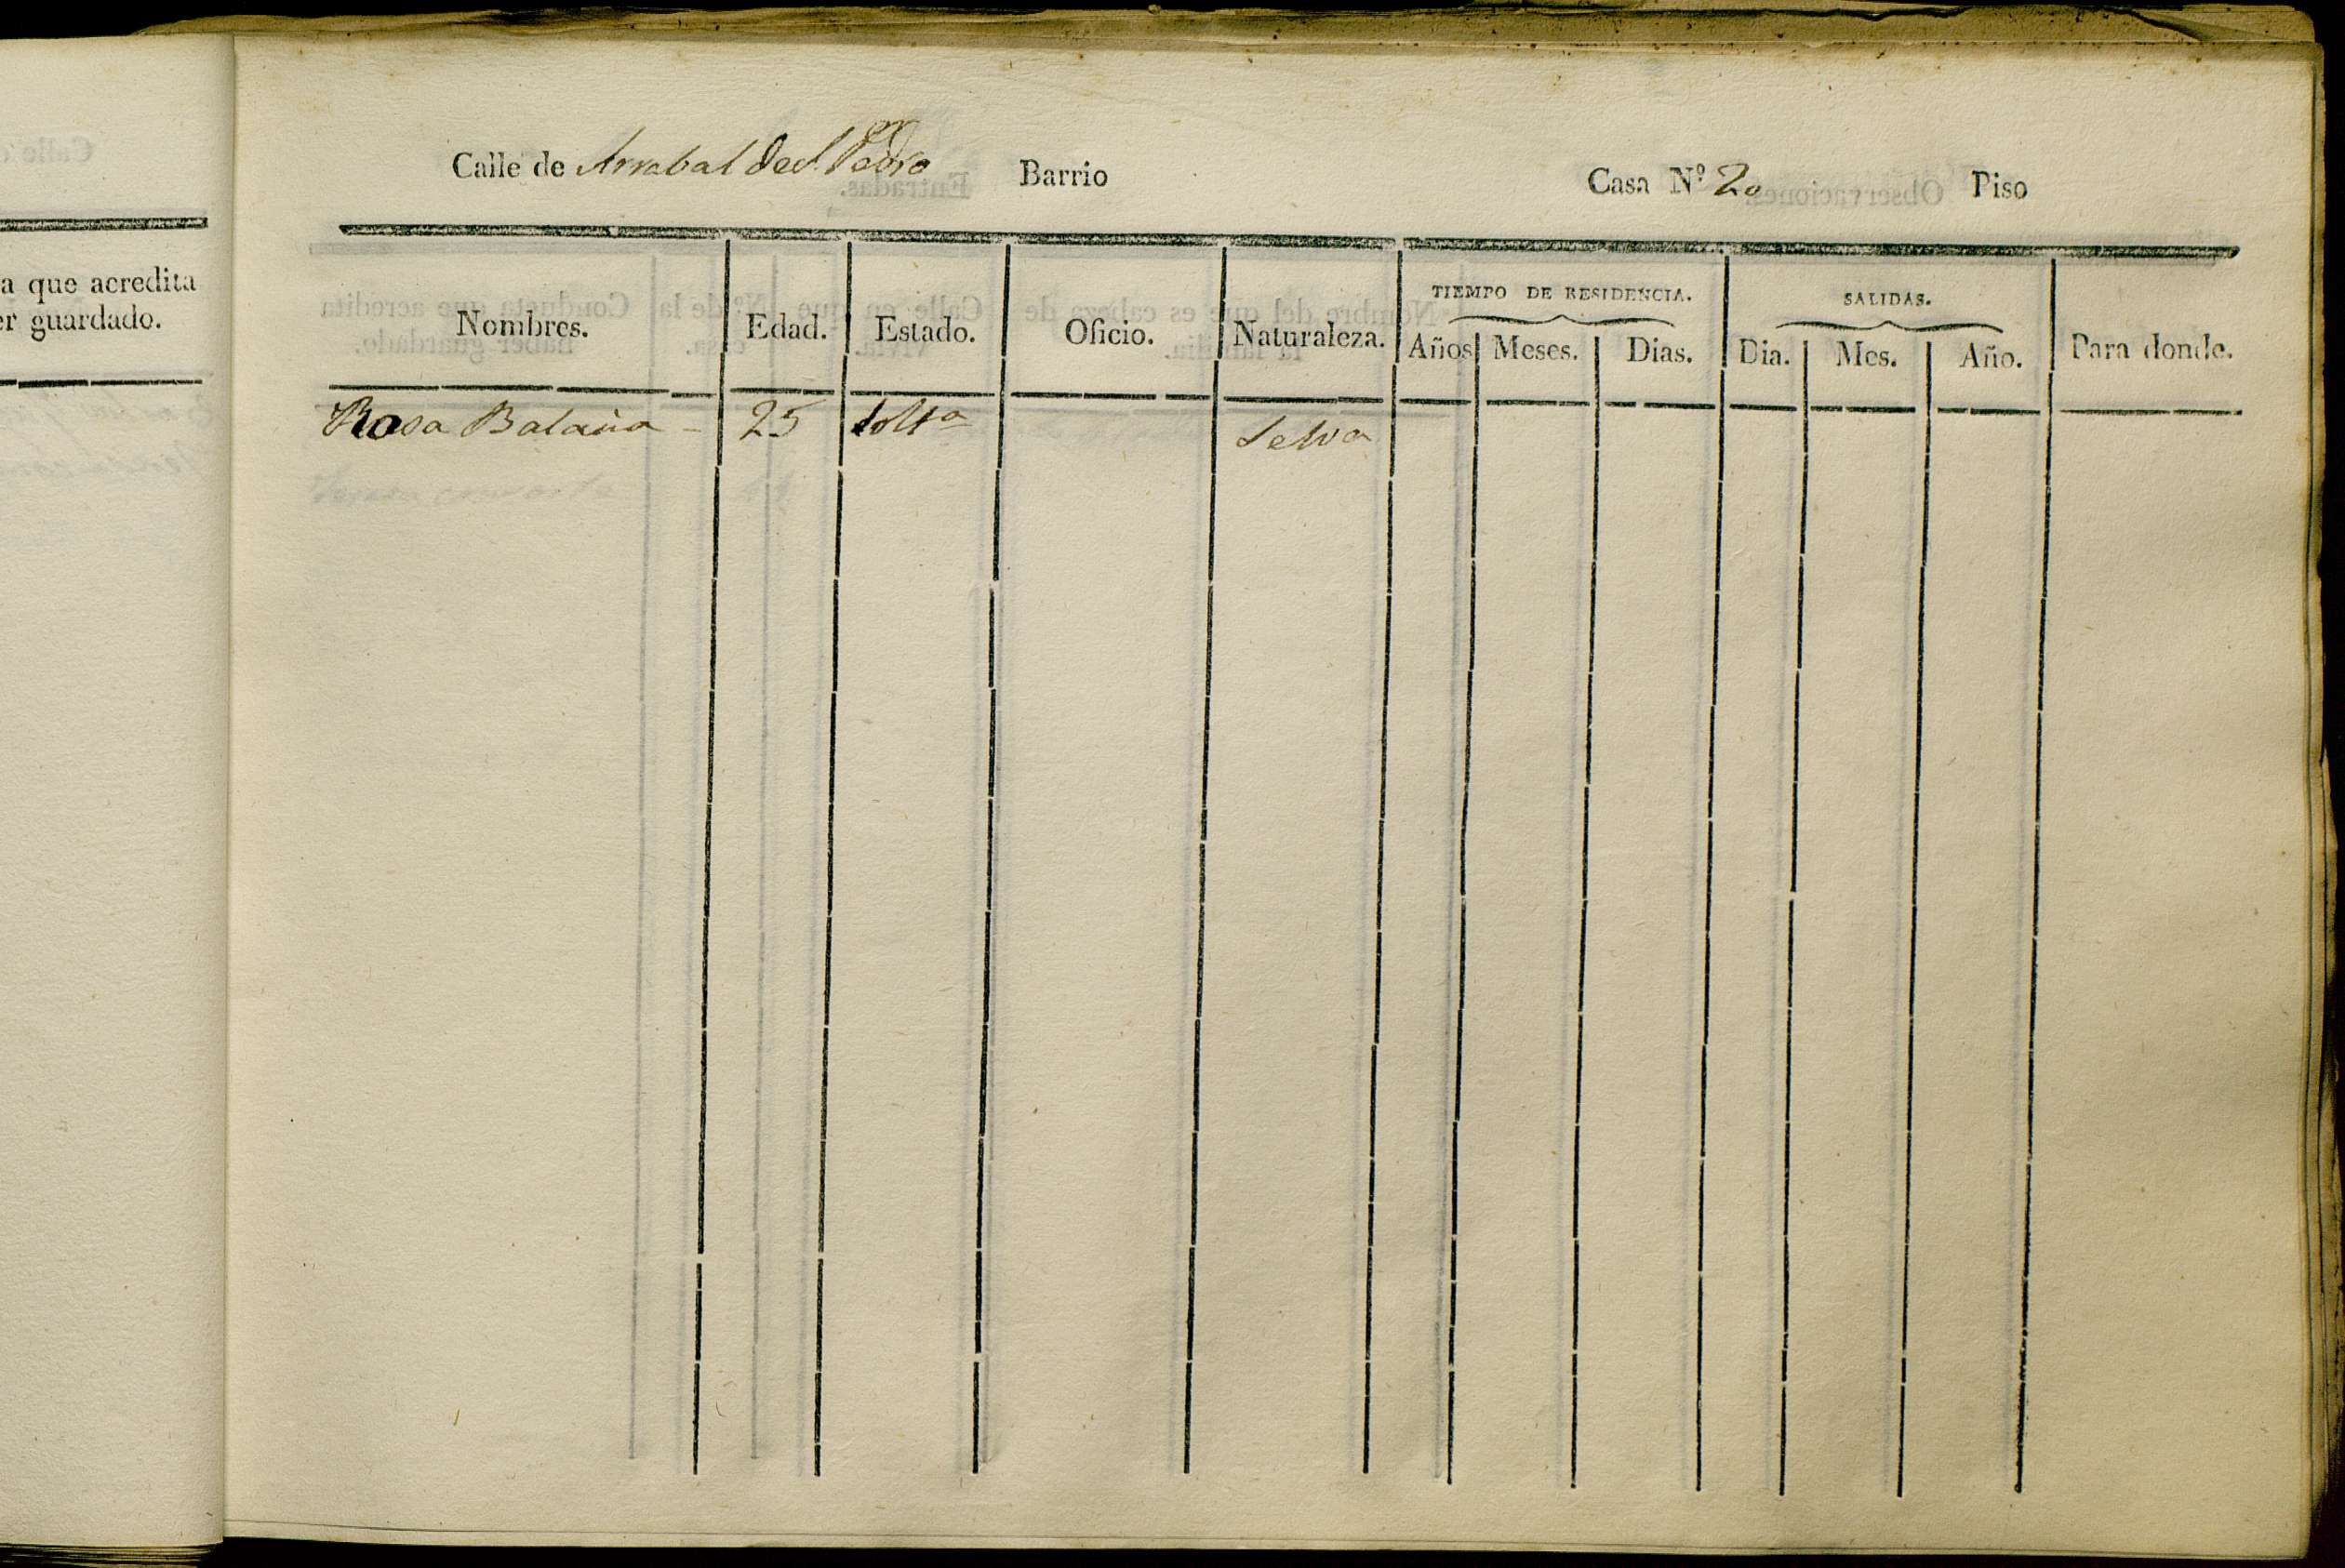 a que acredita
er guardado.
Calle de Arrabal de S. Pedro Barrio Casa Nº 20 Piso
Nombres. Edad. Estado. Oficio. Naturaleza. TIEMPO DE RESIDENCIA. Años Meses. Dias. SALIDAS. Dia. Mes. Año. Para donde.
Rosa Balaña - 25 Solta Selva